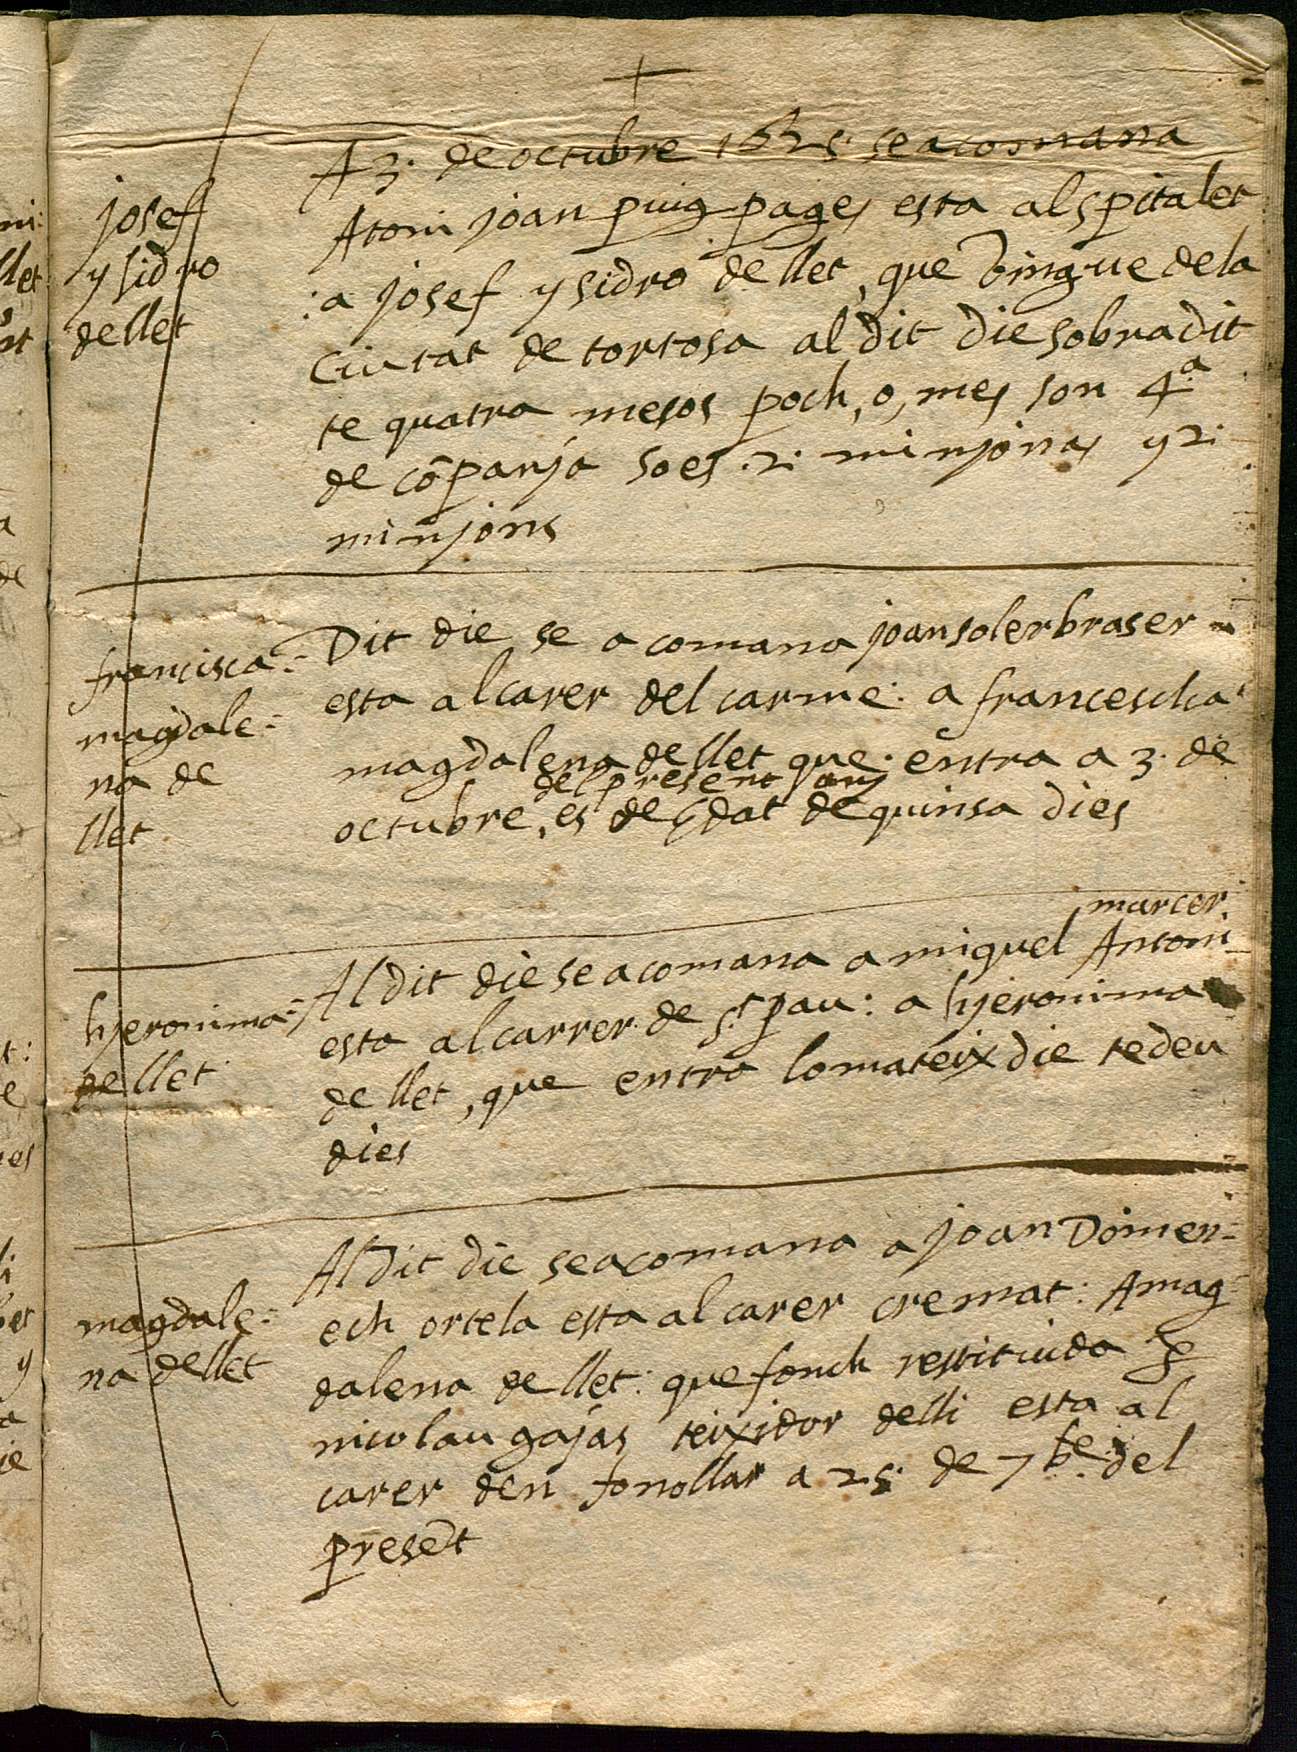 A 3. de octubre 1625. se acomana
josef
ysidro
de llet
Atoni joan puig pages esta al spitalet
:a josef ysidro de llet, que vingue dela
Ciutat de tortosa al dit die sobradit
te quatra mesos poch, o, mes son 4ª
de cõpanja so es .2. minjonas y 2.
minjons
francisca=
magdale=
na de
llet
Dit die se acomana joan soler braser
esta al carer del carme. a francescha
magdalena de llet que entra a 3. de
del present any
octubre, es de Edat de quinsa dies
hjeronima=
de llet
marcer
Al dit die se acomana a miquel Antoni
esta al carrer de St. pau: a hjeronima
de llet, que entra lo mateix die te deu
dies
magdale=
na de llet
Al Dit die se acomana a joan Domen=
ech ortela esta al carer cremat: A mag=
dalena de llet: que fonch restituida ꝑ
nicolau gajas teixidor de lli esta al
carer den fonollar a 25. de 7bre. del
presẽt